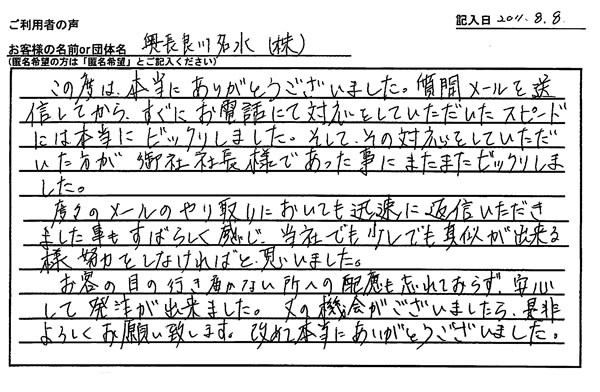 ご利用者の声
記入日 2011. 8. 8.
お客様の名前or団体名 奥長良川名水(株)
(匿名希望の方は「匿名希望」とご記入ください)
この度は、本当にありがとうございました。質問メールを送
信してから、すぐにお電話にて対応をしていただいたスピード
には本当にビックリしました。そして、その対応をしていただ
いた方が御社社長様であった事にまたまたビックリしま
した。
度々のメールのやり取りにおいても迅速に返信いただき
ました事もすばらしく感じ、当社でも少しでも真似が出来る
様努力をしなければと思いました。
お客の目の行き届かない所への配慮も忘れておらず、安心
して発注が出来ました。又の機会がございましたら、是非
よろしくお願い致します。改めて本当にありがとうございました。